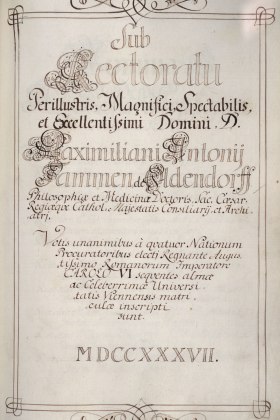 Sub
Rectoratu
Perillustris, Magnifici, Spectabilis,
et Excellentissimi Domini D.
Maximiliani Antonij
Dammen de Eldendorff
Philosophiæ et Medicinæ Doctoris, Sac. Cæsar.
Regiæque Cathol. Majestatis Consiliarij, et Archi-
atri,
Votis unanimibus à quatuor Nationum
Procuratoribus electi Regnante Augus
tissimo Romanorum Imperatore
CAROLO VI sequentes almæ
ac Celeberrimæ Universi
tatis Viennensis matri
culæ inscripti
sunt.
MDCCXXXVII.